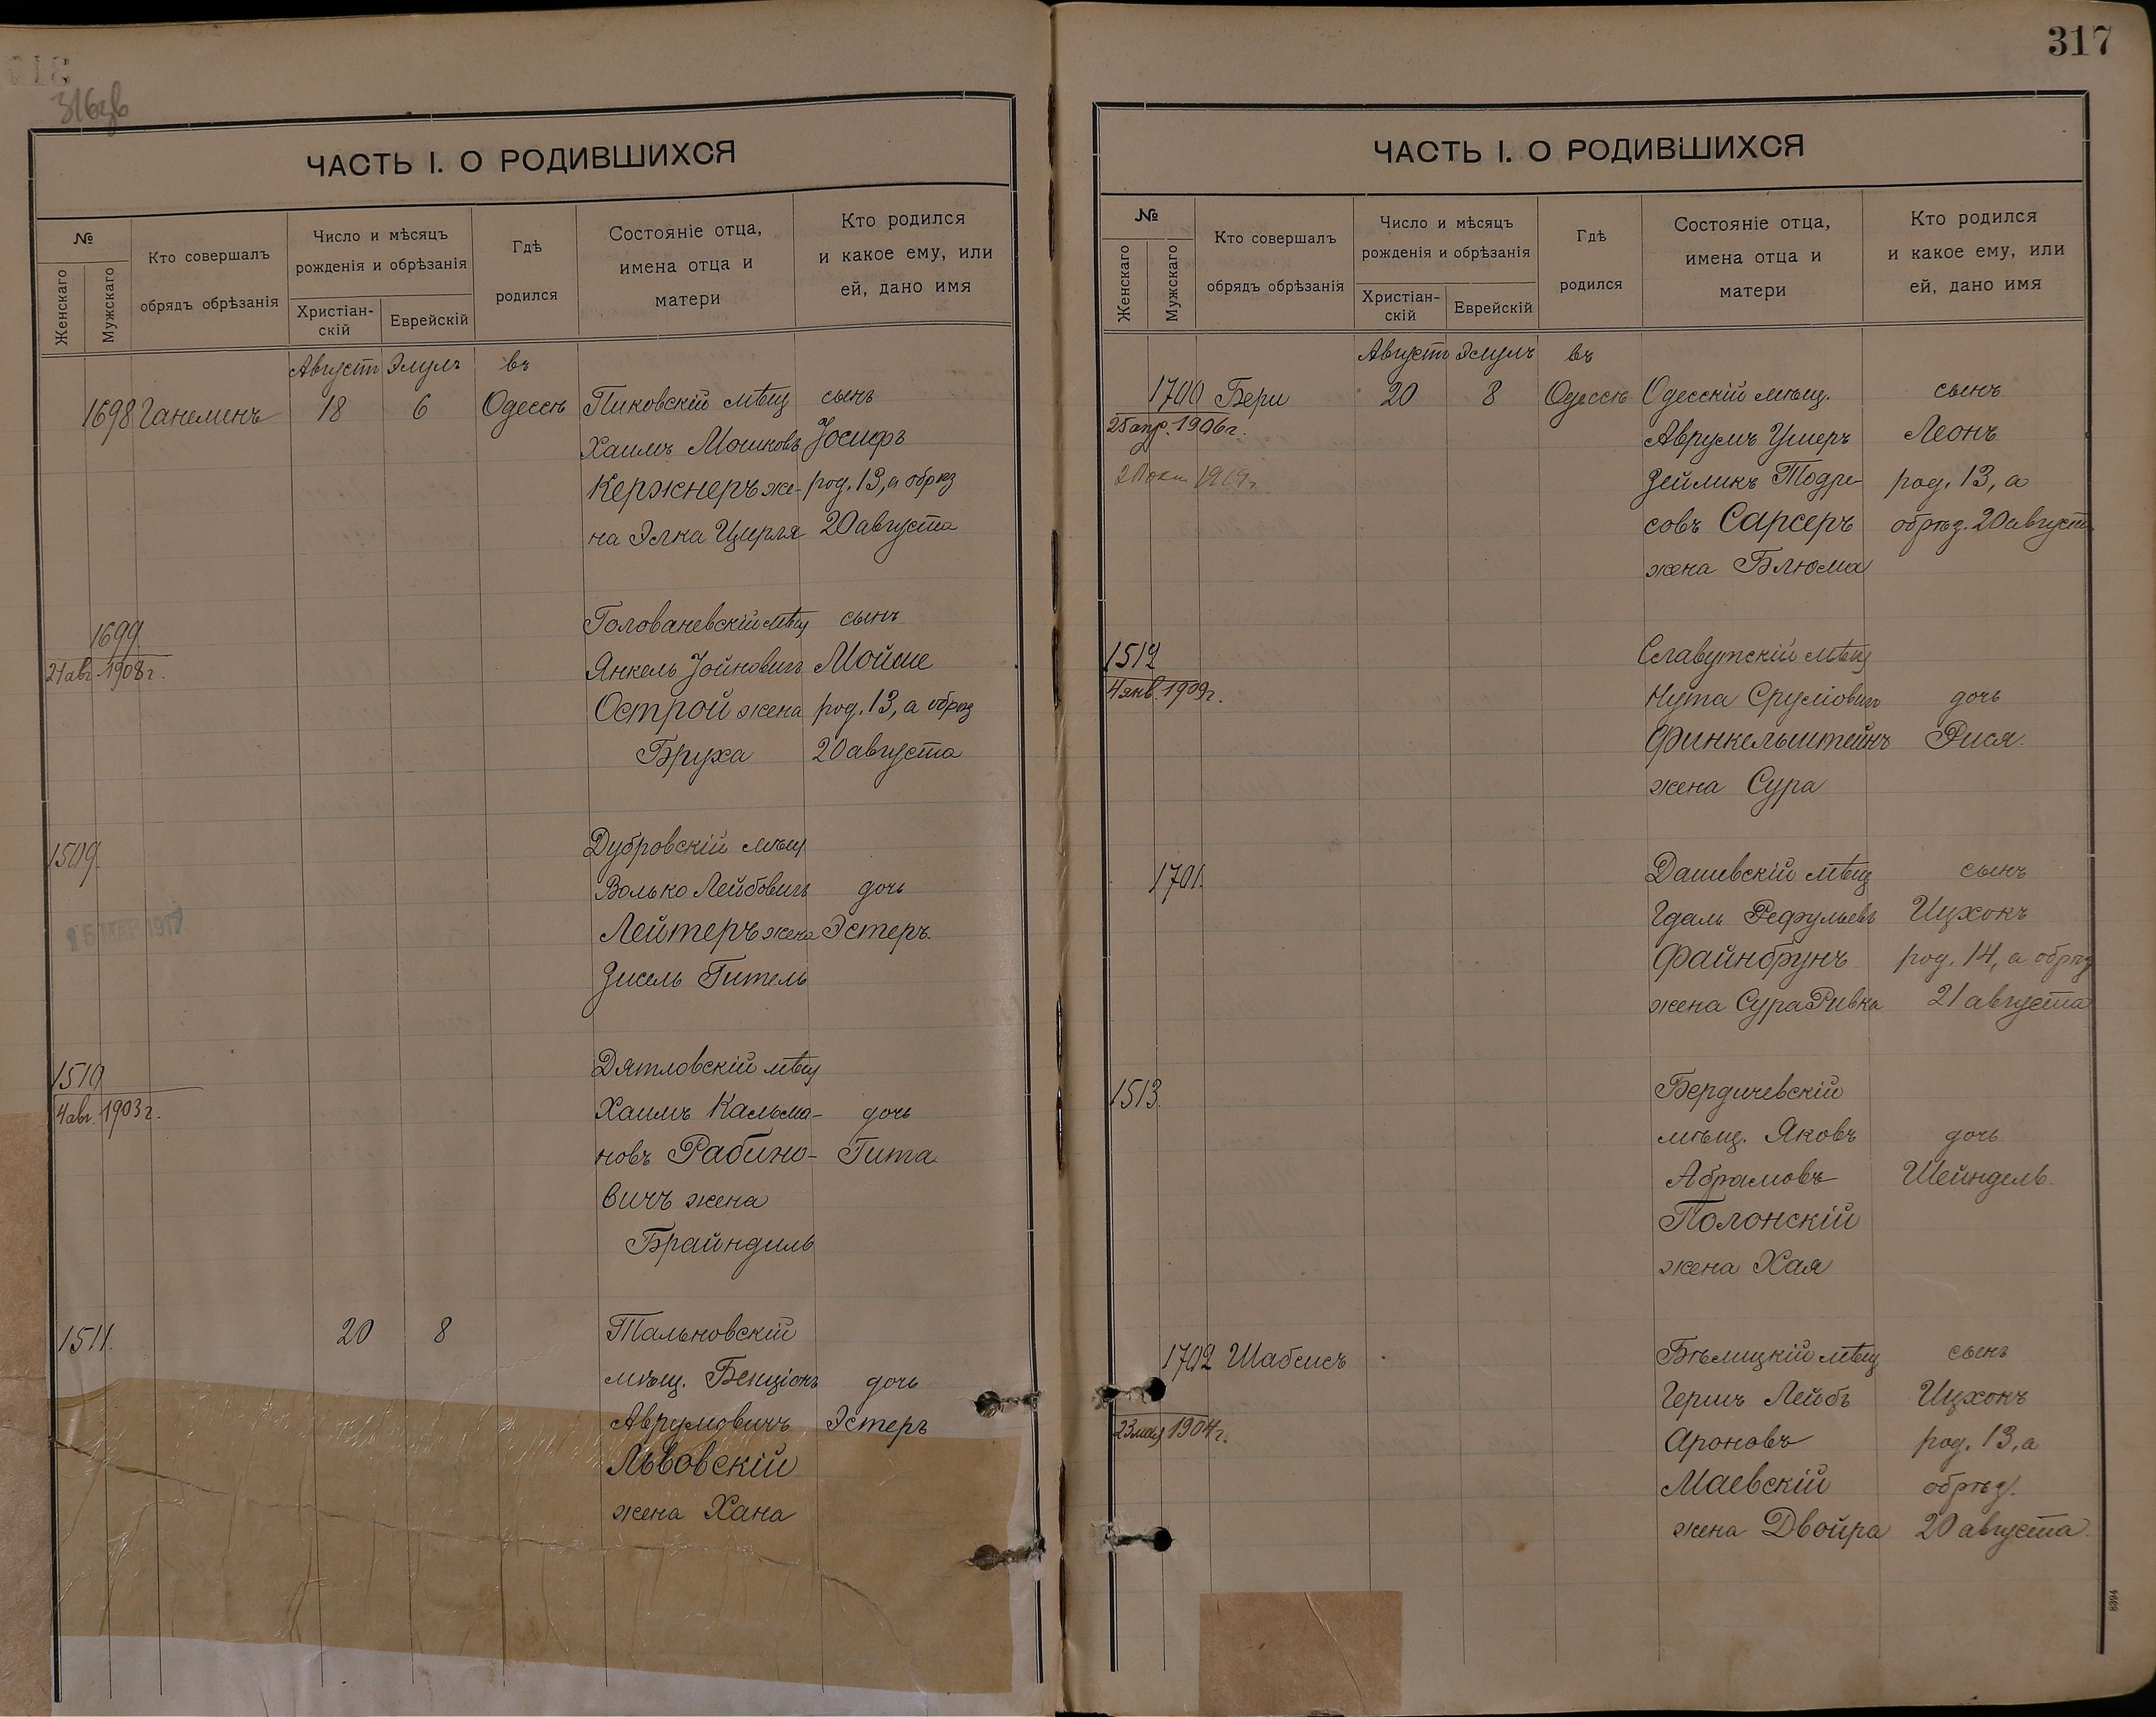 316об
ЧАСТЬ I. О РОДИВШИХСЯ
№
Женскаго
Мужскаго
Кто совершалъ
обрядъ обрѣзанія
Число и мѣсяцъ
рожденія и обрѣзанія
Христіан-
скій
Еврейскій
Гдѣ
родился
Состояніе отца,
имена отца и
матери
Кто родился
и какое ему, или
ей, дано имя
Августъ Элулъ въ
1698 Ганелинъ 18 6 Одессѣ Пиковскій мѣщ сынъ
Хаимъ Мошковъ Іосифъ
Кержнеръ же- род. 13, а обрѣз
на Элка Цирля 20 августа
1699 Голованевскій мѣщ сынъ
21 авг. 1908 г. Янкель Іойновичъ Мойше
Острой жена род. 13, а обрѣз
Бруха 20 августа
1509. Дубровскій мѣщ
Волько Лейбовичъ дочь
25 МАР 1917
Лейтеръ жена Эстеръ.
Зисель Гитель
1510 Дятловскій мѣщ
4 авг. 1903 г. Хаимъ Кальма- дочь
новъ Рабино- Гита
вичъ жена
Брайндиль
1511. 20 8 Тальновскій
мѣщ. Бенціонъ дочь
Аврумовичъ Эстеръ
Львовскій
жена Хана
317
ЧАСТЬ I. О РОДИВШИХСЯ
№
Женскаго
Мужскаго
Кто совершалъ
обрядъ обрѣзанія
Число и мѣсяцъ
рожденія и обрѣзанія
Христіан-
скій
Еврейскій
Гдѣ
родился
Состояніе отца,
имена отца и
матери
Кто родился
и какое ему, или
ей, дано имя
Августъ Элулъ въ
1700 Бери 20 8 Одессѣ Одесскій мѣщ. сынъ
25 апр. 1906 г. Аврумъ Умеръ Леонъ
1919 г. Зейликъ Тодре- род. 13, а
совъ Сарсеръ обрѣз. 20 август.
жена Блюма
1512 Славутскій мѣщ
4 янв. 1909 г. Нута Сруліовичъ дочь
Финкельштейнъ Рися.
жена Сура
1701. Дашевскій мѣщ сынъ
Гдаль Рефульевъ Ицхокъ
Файнбрунъ род. 14, а обрѣз
жена Сура Ривка 21 августа
1513. Бердичевскій
мѣщ. Яковъ дочь
Абрамовъ Шейндель.
Полонскій
жена Хая
1702 Шабсисъ Бѣлицкій мѣщ сынъ
Гершъ Лейбъ Ицхокъ
23 мая 1904 г. Ароновъ род. 13, а
Маевскій обрѣз.
жена Двойра 20 августа.